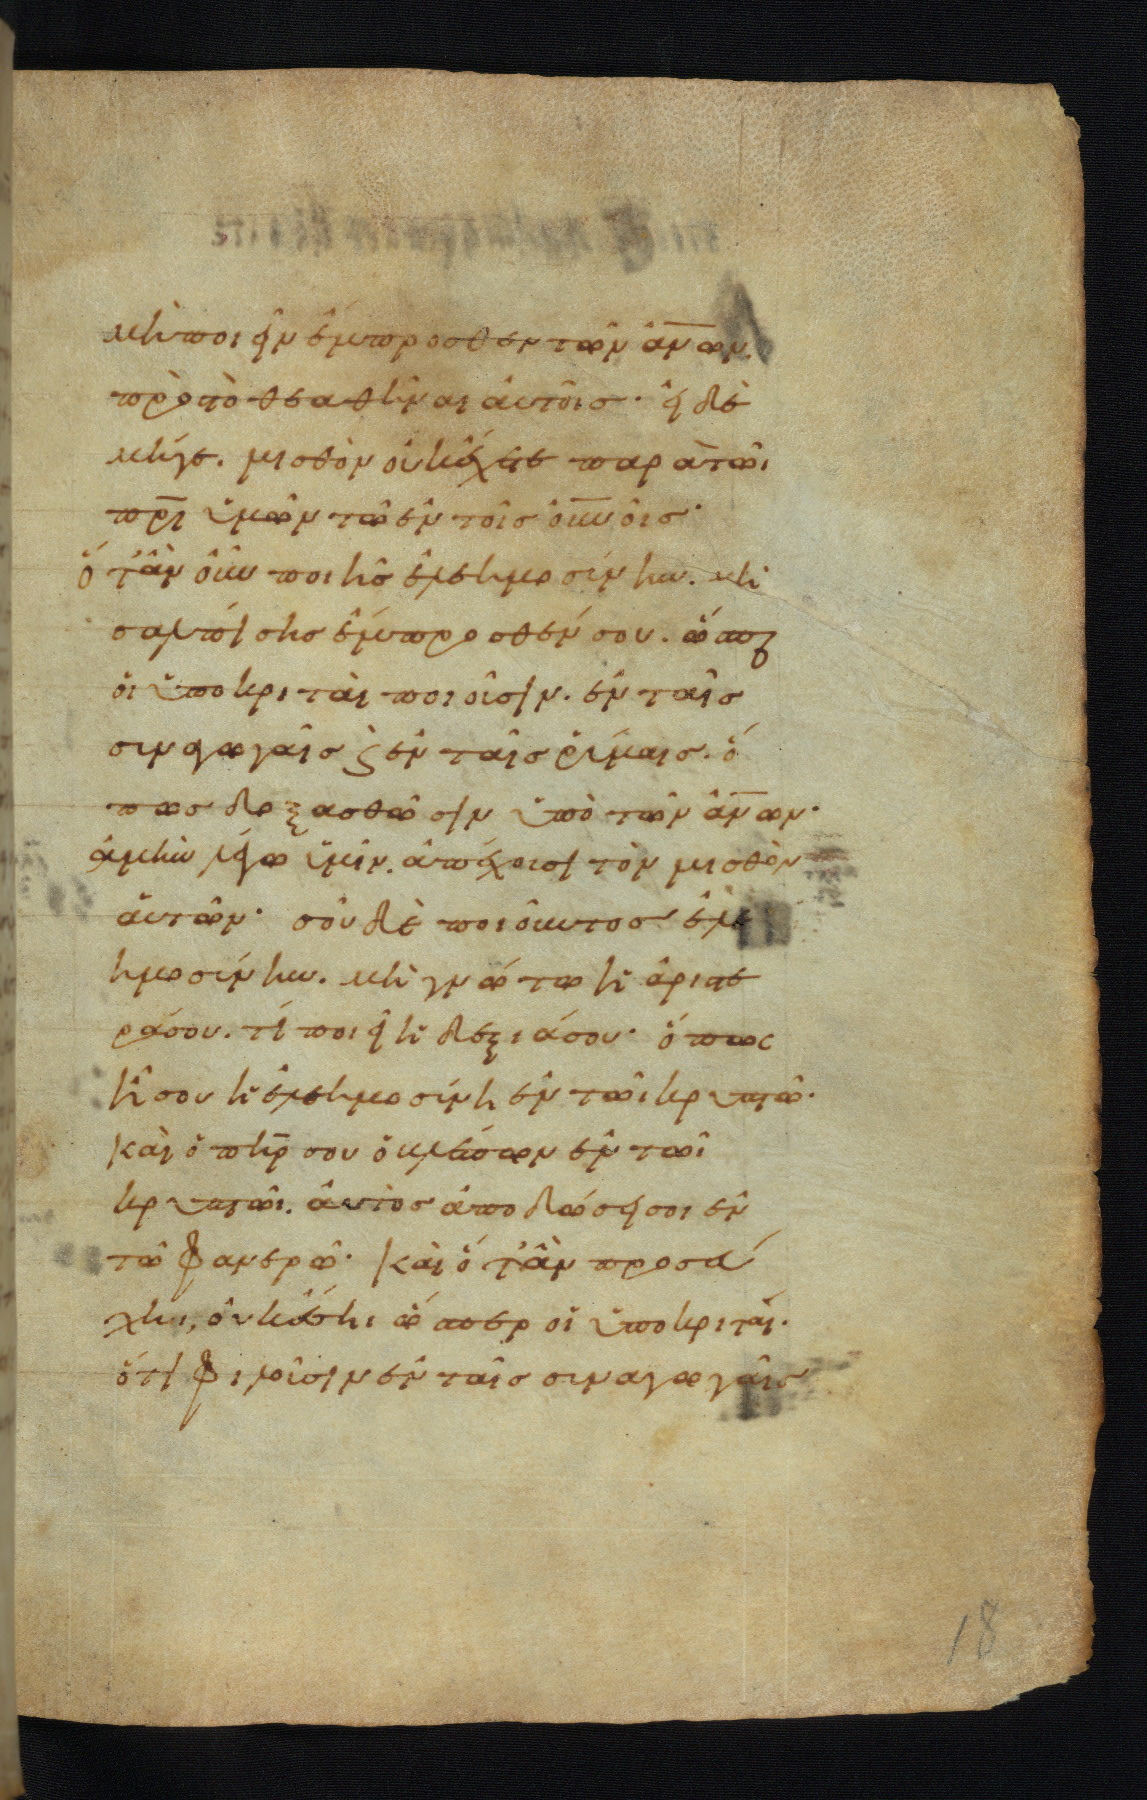 μὴ ποιεῖν ἔμπροσθεν τῶν ἀν̅ων
πρὸς τὸ θεαθῆναι αὐτοῖς· εἰ δὲ
μήγε. μισθὸν οὐκ ἔχετε παρὰ τῶι
πρ̅ι ὑμῶν τῶ ἐν τοῖς οὐν̅οις·
ὅταν οὖν ποιῆς ἐλεημοσύνην. μὴ
σαλπίσης ἔμπροσθέν σου. ὥσπερ
οἱ ὑποκριταὶ ποιοῦσιν. ἐν ταῖς
συναγωγαῖς ϗ ἐν ταῖς ῥύμαις. ὅ
πως δοξασθῶσιν ὑπὸ τῶν ἀν̅ων·
ἀμὴν λέγω ὑμῖν. ἀπέχουσι τὸν μισθὸν
αὐτῶν· σοῦ δὲ ποιοῦντος ἐλε
ημοσύνην. μὴ γνώτω ἡ ἀριστε
ρά σου. τί ποιεῖ ἡ δεξιά σου· ὅπως
ἦ σου ἡ ἐλεημοσύνη ἐν τῶι κρυπτῶ·
καὶ ὁ πηρ̅ σου ὁ βλέπων ἐν τῶι
κρυπτῶι. αὐτὸς ἀποδώσει σοι ἐν
τῶ φανερῶ· καὶ ὅταν προσεύ
χηι, οὐκ ἔσηι ὥσπερ οἱ ὑποκριταί·
ὅτι φιλοῦσιν ἐν ταῖς συναγωγαῖς
18